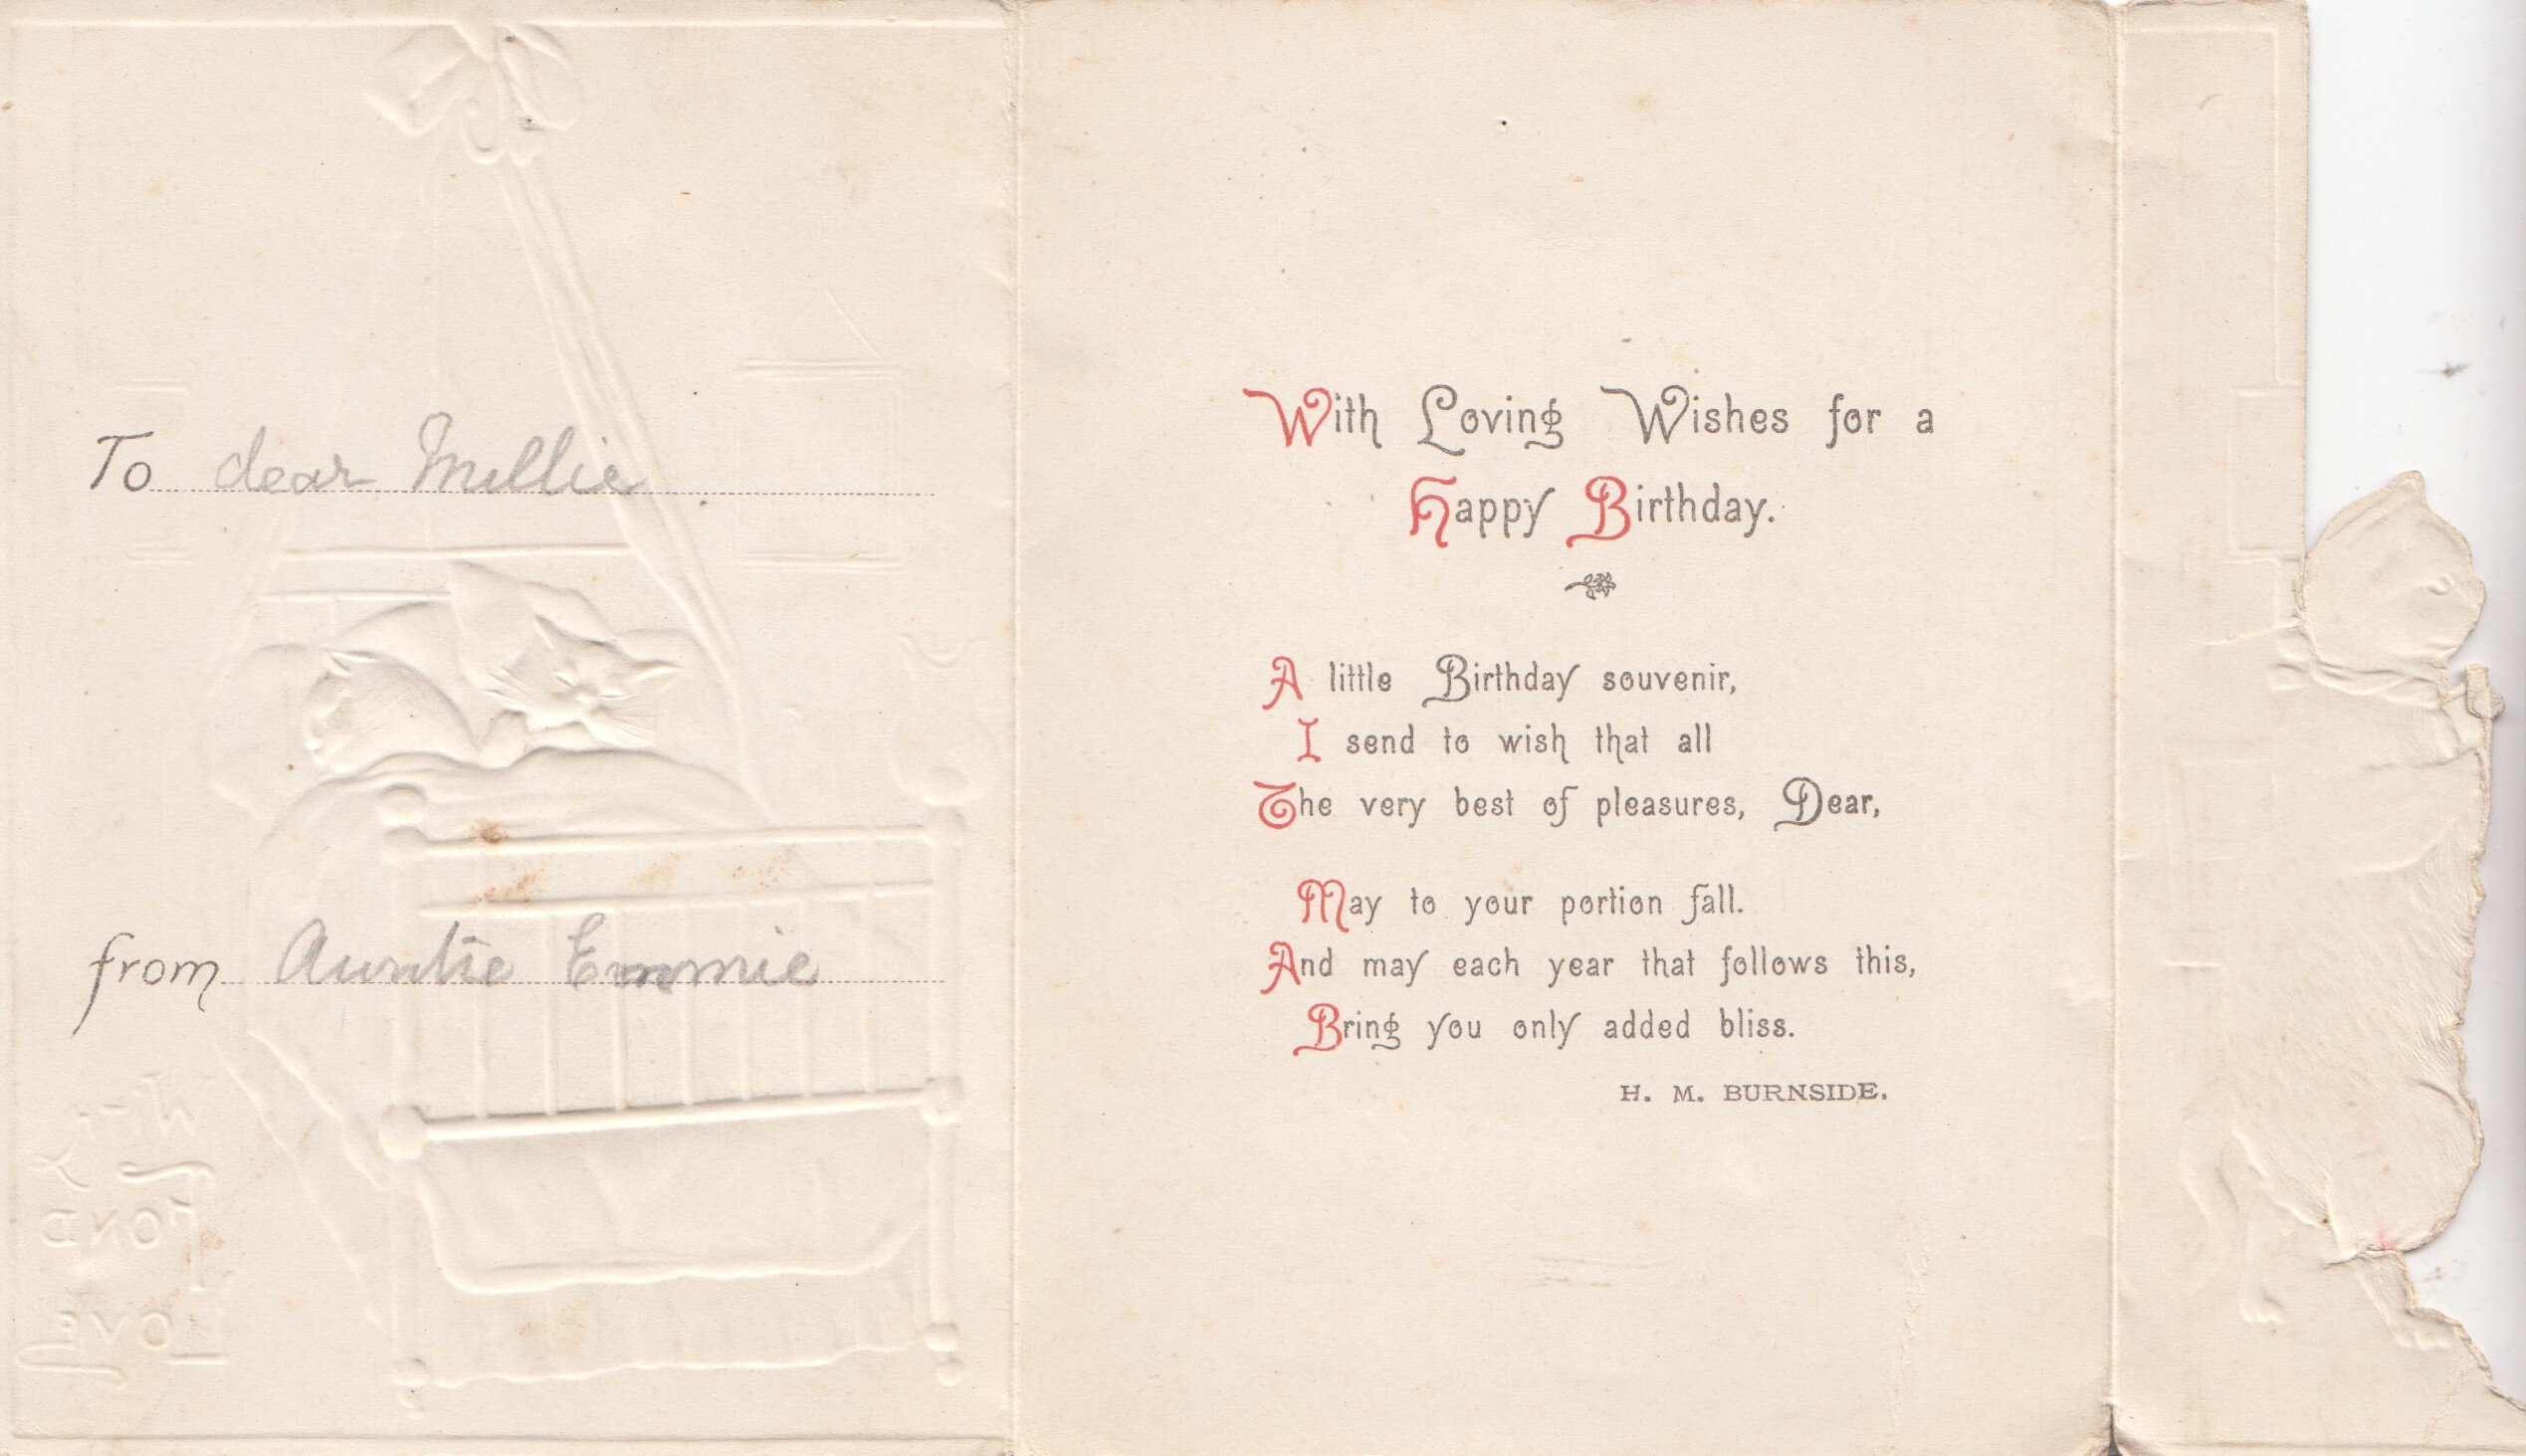 To dear Millie
from Auntie Emmie
WITH
FOND
LOVE
With Loving Wishes for a
Happy Birthday.
A little Birthday souvenir,
I send to wish that all
The very best of pleasures, Dear,
May to your portion fall.
And may each year that follows this,
Bring you only added bliss.
H. M. BURNSIDE.